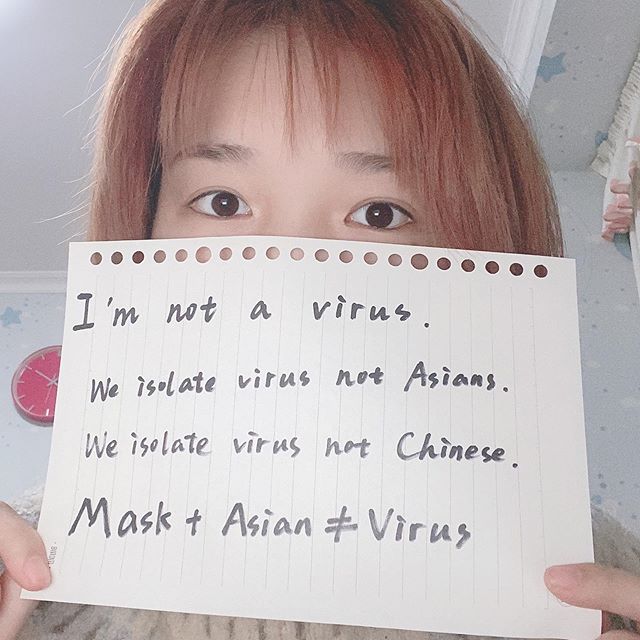 I'm not a virus.
We isolate virus not Asians.
We isolate virus not Chinese.
Mask + Asian ≠ Virus